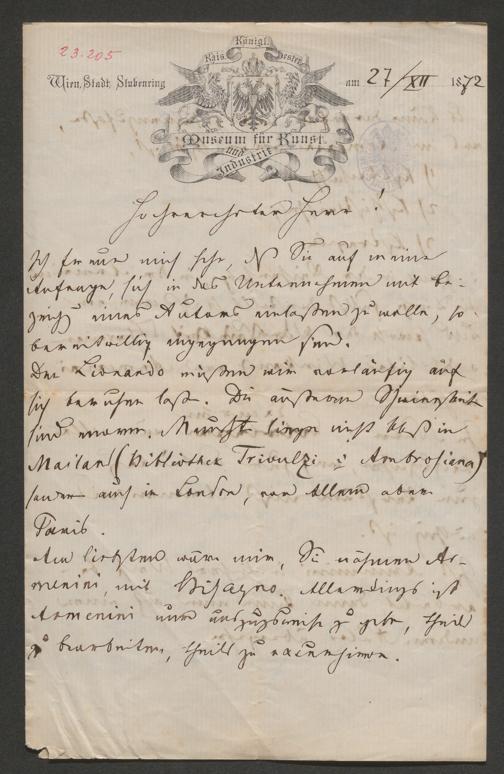 23.205
Königl.
Kais. Oesterr.
Wien, Stadt, Stubenring am 27/XII 1872
Museum für Kunst
und
Industrie
Hochverehrtester Herr!
Ich freue mich sehr, dß Sie auf meine
Anfrage, sich in das Unternehmen mit Be-
zug eines Autors einlassen zu wollen, so
bereitwillig eingegangen sind.
Den Lionardo müssen wir vorläufig auf
sich beruhen lassen. Die äusseren Schwierigkeiten
sind enorm. Manuscr. liegen nicht bloß in
Mailand (Bibliothek Trivulzi u Ambrosiana)
sondern auch in London, vor Allem aber
Paris.
Am liebsten wäre mir, Sie nähmen Ar-
menini, mit Bisagno. Allerdings ist
Armenini nur auszugsweise zu geben, theils
zu bearbeiten, theils zu